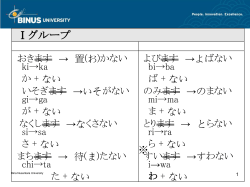 BINUS UNIVERSITY
People, Innovation, Excellence.
Ⅰグループ
おきます → 置(お)かない
ki→ka
か + ない
いそぎます→いそがない
gi→ga
が + ない
なくします→なくさない
si→sa
さ + ない
まちます→ 待(ま)たない
chi→ta
た + ない
よびます→よばない
bi→ba
ば + ない
のみます→のまない
mi→ma
ま + ない
とります→ とらない
ri→ra
ら + ない
※
すいます→すわない
i→wa
わ + ない
Bina Nusantara University
1